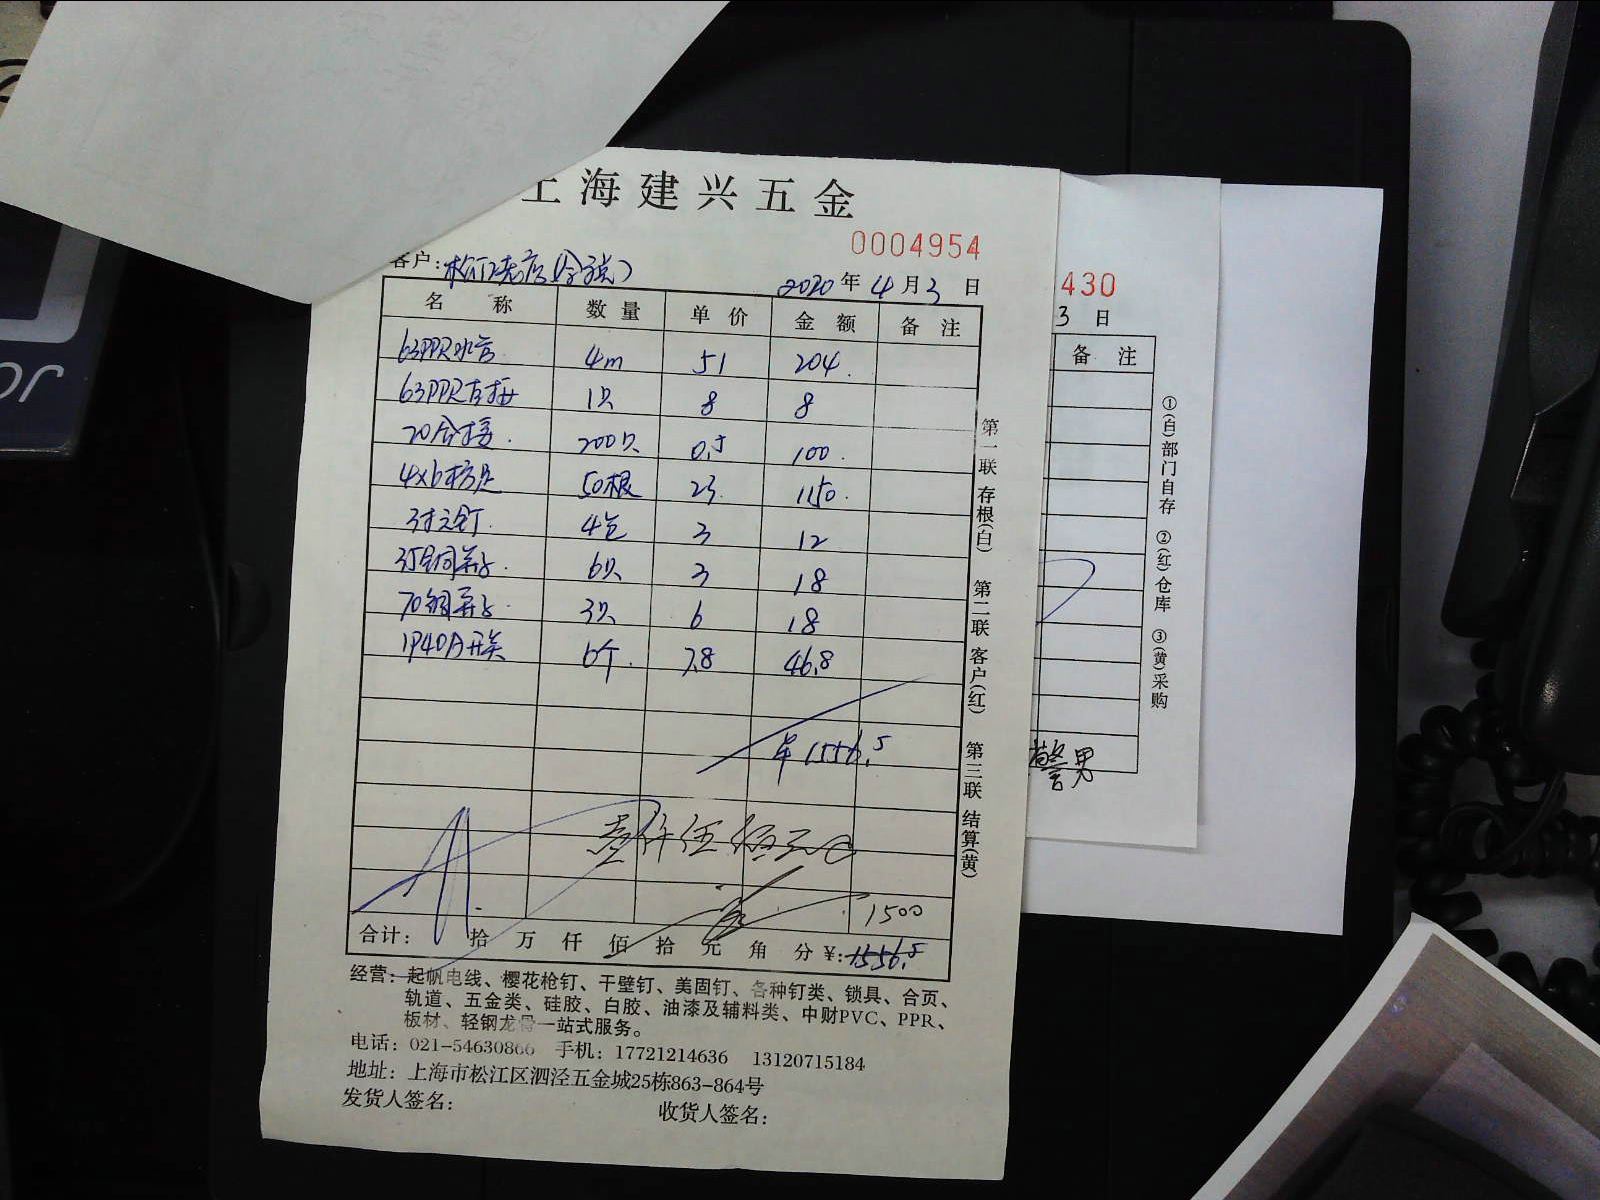 上海建兴五金
0004954
客户：松江老店(含税)
2020年4月3日
名称 数量 单价 金额 备注
63PPR水管 4m 51 204.
63PPR直接 1只 8 8
20 200只 0.5 100.
4x6 50根 23. 1150.
4包 3 12
35铜 6只 3 18
70铜 3只 6 18
1P40A开关 6个. 7.8 46.8
1556.5
壹仟伍佰元
1500
合计： 拾 万 仟 佰 拾 元 角 分 ¥:1556.5
第一联 存根(白) 第二联 客户(红) 第三联 结算(黄)
经营：起帆电线、樱花枪钉、干壁钉、美固钉、各种钉类、锁具、合页、
轨道、五金类、硅胶、白胶、油漆及辅料类、中财PVC、PPR、
板材、轻钢龙骨一站式服务。
电话：021-54630866 手机：17721214636 13120715184
地址：上海市松江区泗泾五金城25栋863-864号
发货人签名： 收货人签名：
430
3日
备注
①(白)部门自存 ②(红)仓库 ③(黄)采购
男